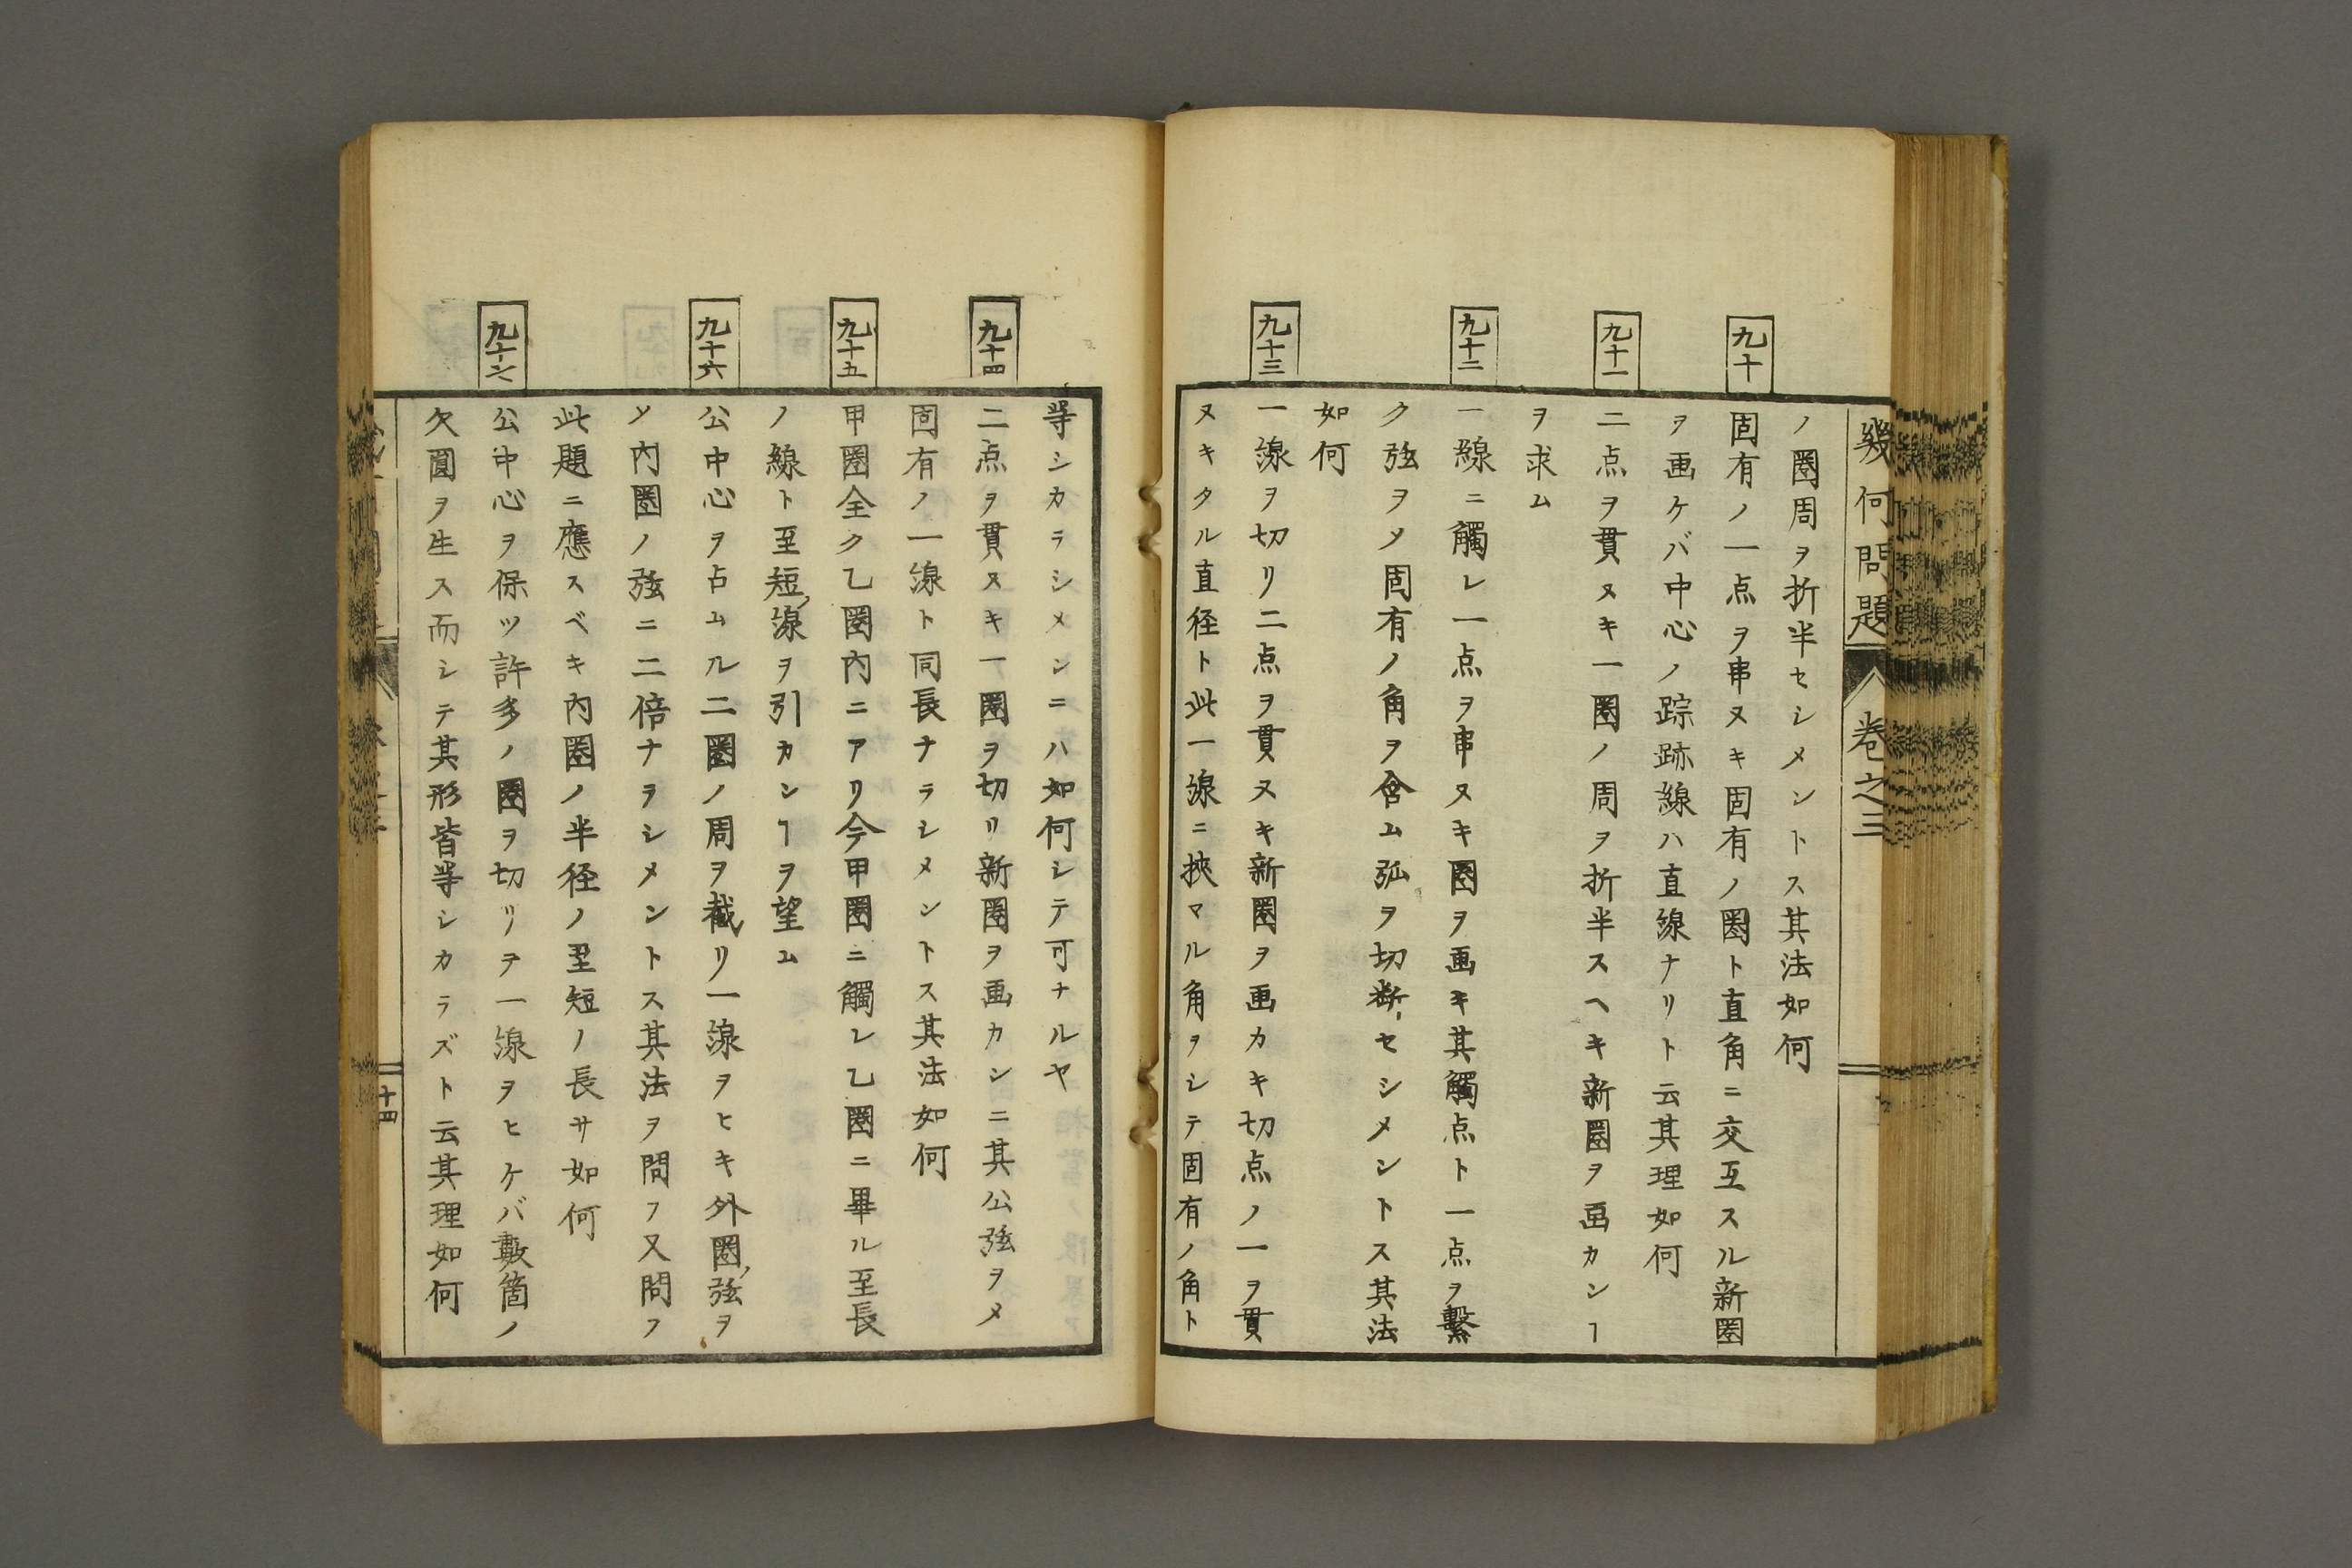 幾何問題 卷之三
ノ圏周ヲ折半セシメントス其法如何
九十
固有ノ一点ヲ串ヌキ固有ノ圏ト直角ニ交互スル新圏
ヲ画ケバ中心ノ踪跡線ハ直線ナリト云其理如何
九十一
二点ヲ貫ヌキ一圏ノ周ヲ折半スヘキ新圏ヲ畵カンヿ
ヲ求ム
九十二
一線ニ觸レ一点ヲ串ヌキ圏ヲ画キ其觸点ト一点ヲ繫
ク弦ヲ〆固有ノ角ヲ含ム弧ヲ切断セシメントス其法
如何
九十三
一線ヲ切リ二点ヲ貫ヌキ新圏ヲ画カキ切点ノ一ヲ貫
ヌキタル直径ト此一線ニ挾マル角ヲシテ固有ノ角ト
等シカラシメンニハ如何シテ可ナルヤ
九十四
二点ヲ貫ヌキ一圏ヲ切リ新圏ヲ画カンニ其公弦ヲ〆
固有ノ一線ト同長ナラシメントス其法如何
九十五
甲圏全ク乙圏内ニアリ今甲圏ニ觸レ乙圏ニ畢ル至長
ノ線ト至短線ヲ引カンヿヲ望ム
九十六
公中心ヲ占ムル二圏ノ周ヲ截リ一線ヲヒキ外圏弦ヲ
〆内圏ノ弦ニ二倍ナラシメントス其法ヲ問フ又問フ
此題ニ應スベキ内圏ノ半径ノ至短ノ長サ如何
九十七
公中心ヲ保ツ許多ノ圏ヲ切リテ一線ヲヒケバ數箇ノ
欠圓ヲ生ス而シテ其形皆等シカラズト云其理如何
十四